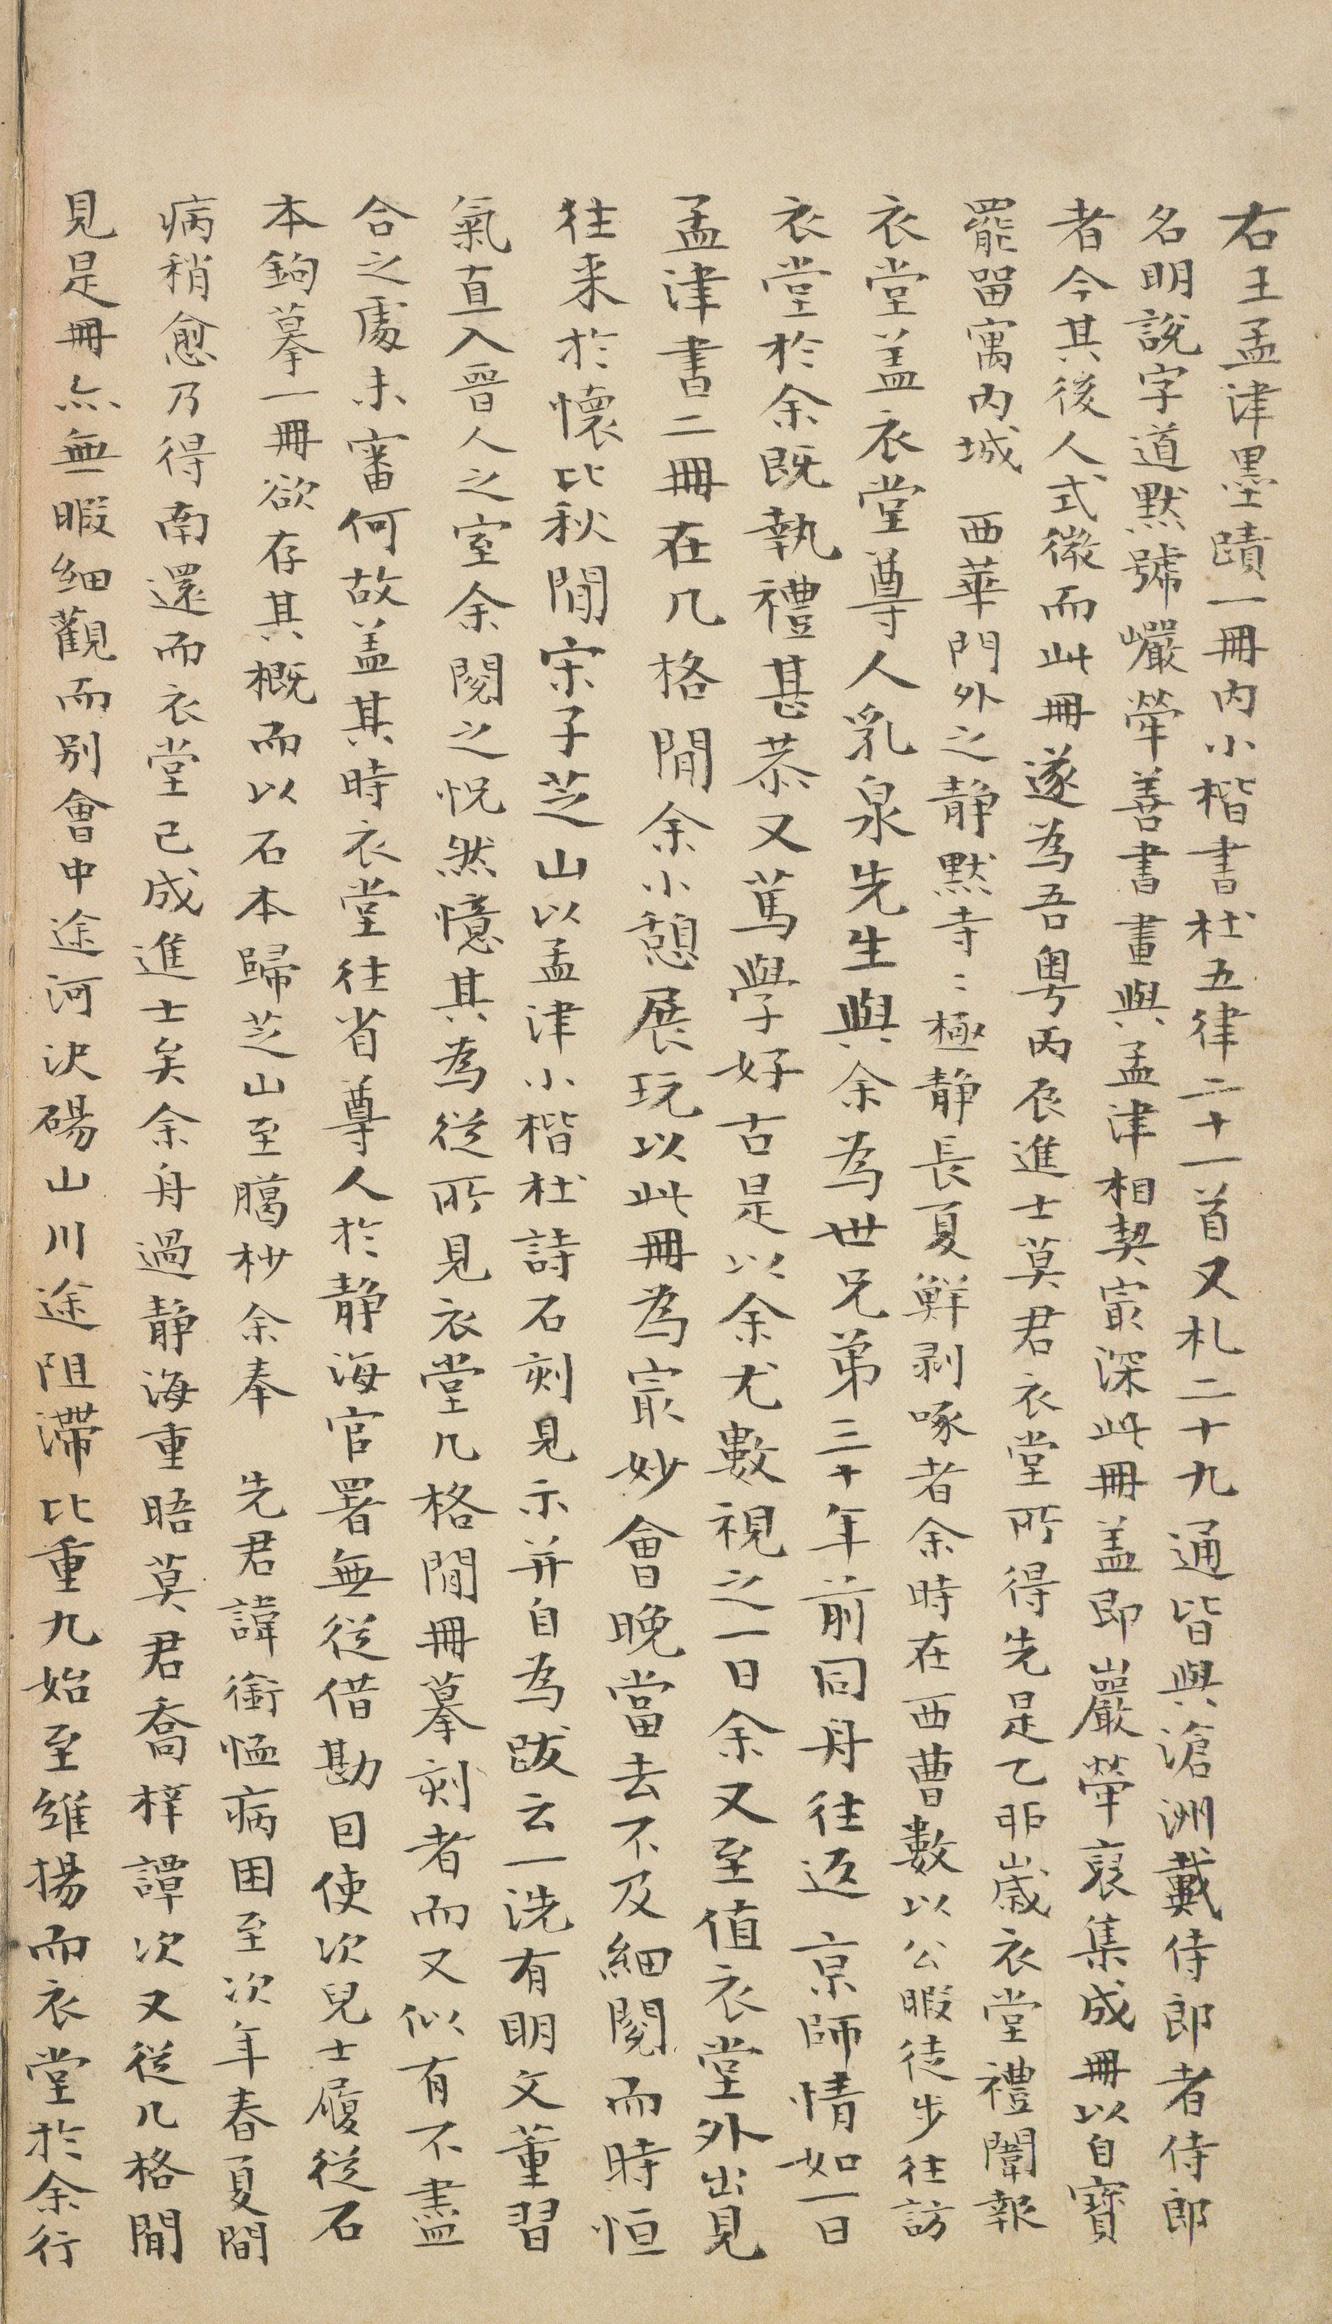 右王孟津墨蹟一冊内小楷書杜五律二十一首又札二十九通皆與滄洲戴侍郎者侍郎
名明說字道默號巗犖善書畫與孟津相契㝡深此冊盖即巖犖裒集成冊以自寶
者今其後人式微而此冊遂為吾粵丙辰進士莫君衣堂所得先是乙卯歲衣堂禮闈報
罷留寓内城 西華門外之静默寺〻極静長夏鮮剥啄者余時在西曹數以公暇徒步往訪
衣堂盖衣堂尊人乳泉先生與余為世兄弟三十年前同舟往返 京師情如一日
衣堂於余既執禮甚恭又篤學好古是以余尤數視之一日余又至值衣堂外出見
孟津書二冊在几格閒余小憩展玩以此冊為㝡妙會晚當去不及細閱而時恒
往来於懷比秋閒宋子芝山以孟津小楷杜詩石刻見示并自為跋云一洗有明文董習
氣直入晋人之室余閱之怳然憶其為従所見衣堂几格閒冊摹刻者而又似有不盡
合之處未審何故盖其時衣堂往省尊人於静海官署無従借勘囙使次兒士履従石
本鉤摹一冊欲存其概而以石本歸芝山至臈杪余奉 先君諱銜恤病困至次年春夏閒
病稍愈乃得南還而衣堂已成進士矣余舟過静海重晤莫君喬梓譚次又従几格閒
見是冊亦無暇細觀而别會中途河決碭山川途阻滞比重九始至維揚而衣堂於余行